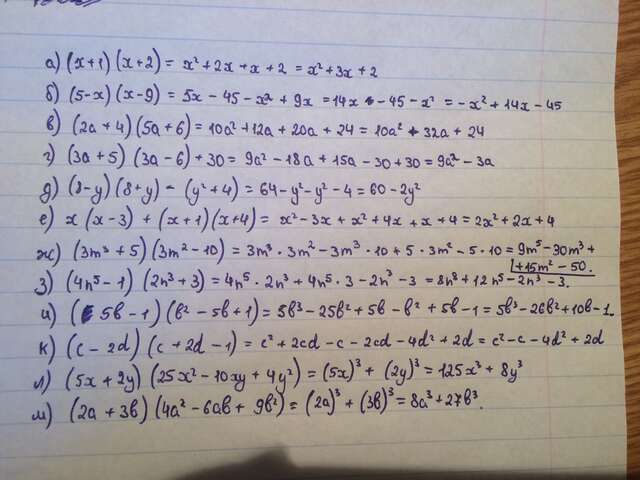 а) (x+1)(x+2) = x²+2x+x+2 = x²+3x+2
б) (5-x)(x-9) = 5x-45-x²+9x = 14x-45-x² = -x²+14x-45
в) (2a+4)(5a+6) = 10a²+12a+20a+24 = 10a²+32a+24
г) (3a+5)(3a-6)+30 = 9a²-18a+15a-30+30 = 9a²-3a
д) (8-y)(8+y)-(y²+4) = 64-y²-y²-4 = 60-2y²
е) x(x-3)+(x+1)(x+4) = x²-3x+x²+4x+x+4 = 2x²+2x+4
ж) (3m³+5)(3m²-10) = 3m³·3m²-3m³·10+5·3m²-5·10 = 9m⁵-30m³+
+15m²-50.
з) (4n⁵-1)(2n³+3) = 4n⁵·2n³+4n⁵·3-2n³-3 = 8n⁸+12n⁵-2n³-3.
и) (5b-1)(b²-5b+1) = 5b³-25b²+5b-b²+5b-1 = 5b³-26b²+10b-1.
к) (c-2d)(c+2d-1) = c²+2cd-c-2cd-4d²+2d = c²-c-4d²+2d
л) (5x+2y)(25x²-10xy+4y²) = (5x)³+(2y)³ = 125x³+8y³
м) (2a+3b)(4a²-6ab+9b²) = (2a)³+(3b)³ = 8a³+27b³